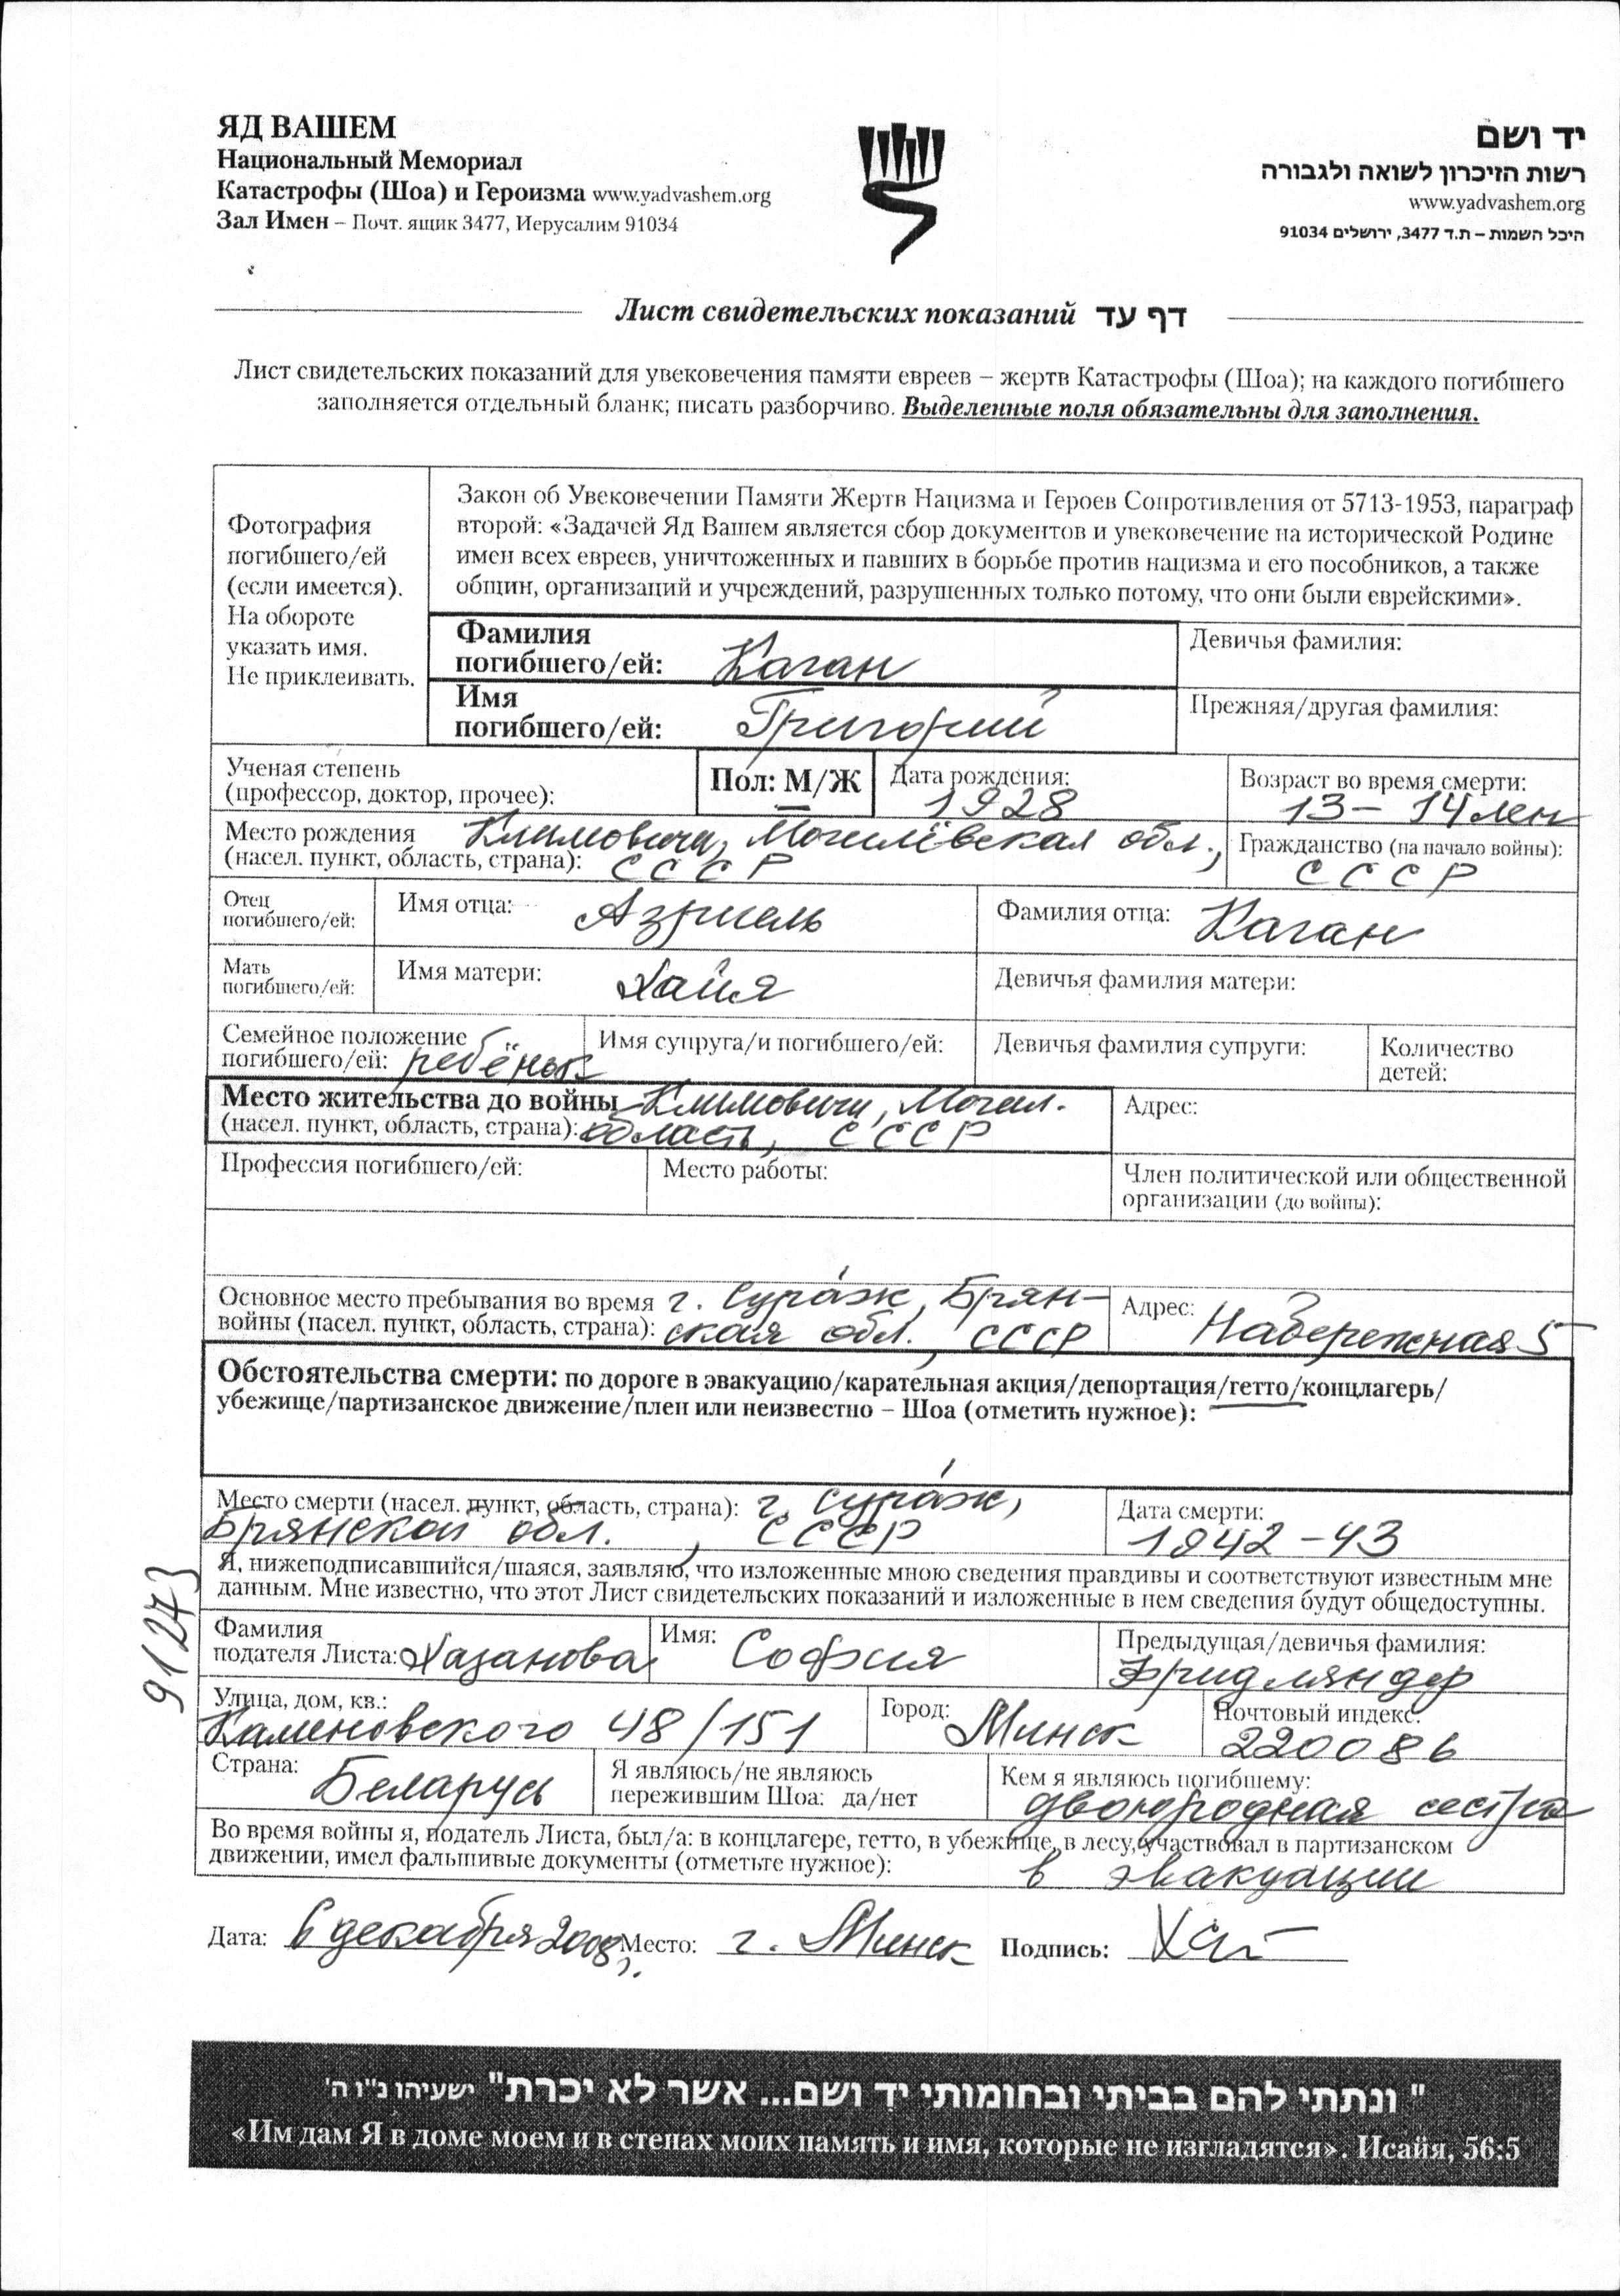 ЯД ВАШЕМ
Национальный Мемориал
Катастрофы (Шоа) и Героизма www.yadvashem.org
Зал Имен – Почт. ящик 3477, Иерусалим 91034
יד ושם
רשות הזיכרון לשואה ולגבורה
www.yadvashem.org
היכל השמות – ת.ד 3477, ירושלים 91034
Лист свидетельских показаний דף עד
Лист свидетельских показаний для увековечения памяти евреев – жертв Катастрофы (Шоа); на каждого погибшего
заполняется отдельный бланк; писать разборчиво. Выделенные поля обязательны для заполнения.
Фотография
погибшего/ей
(если имеется).
На обороте
указать имя.
Не приклеивать.
Закон об Увековечении Памяти Жертв Нацизма и Героев Сопротивления от 5713-1953, параграф
второй: «Задачей Яд Вашем является сбор документов и увековечение на исторической Родине
имен всех евреев, уничтоженных и павших в борьбе против нацизма и его пособников, а также
общин, организаций и учреждений, разрушенных только потому, что они были еврейскими».
Фамилия
погибшего/ей: Каган
Девичья фамилия:
Имя
погибшего/ей: Григорий
Прежняя/другая фамилия:
Ученая степень
(профессор, доктор, прочее):
Пол: М/Ж
Дата рождения:
1928
Возраст во время смерти:
13 – 14 лет
Место рождения Климовичи, Могилёвская обл.,
(насел. пункт, область, страна): СССР
Гражданство (на начало войны):
СССР
Отец
погибшего/ей:
Имя отца: Азриель
Фамилия отца: Каган
Мать
погибшего/ей:
Имя матери: Хайя
Девичья фамилия матери:
Семейное положение
погибшего/ей: ребёнок
Имя супруга/и погибшего/ей:
Девичья фамилия супруги:
Количество
детей:
Место жительства до войны Климовичи, Могил.
(насел. пункт, область, страна): область, СССР
Адрес:
Профессия погибшего/ей:
Место работы:
Член политической или общественной
организации (до войны):
Основное место пребывания во время г. Сура́ж, Брян-
войны (насел. пункт, область, страна): ская обл., СССР
Адрес: Набережная 5
Обстоятельства смерти: по дороге в эвакуацию/карательная акция/депортация/гетто/концлагерь/
убежище/партизанское движение/плен или неизвестно – Шоа (отметить нужное):
Место смерти (насел. пункт, область, страна): г. Сура́ж,
Брянской обл., СССР
Дата смерти:
1942 – 43
Я, нижеподписавшийся/шаяся, заявляю, что изложенные мною сведения правдивы и соответствуют известным мне
данным. Мне известно, что этот Лист свидетельских показаний и изложенные в нем сведения будут общедоступны.
91273
Фамилия
подателя Листа: Хазанова
Имя: София
Предыдущая/девичья фамилия:
Фридляндер
Улица, дом, кв.:
Калиновского 48/151
Город: Минск
Почтовый индекс:
220086
Страна: Беларусь
Я являюсь/не являюсь
пережившим Шоа: да/нет
Кем я являюсь погибшему:
двоюродная сестра
Во время войны я, податель Листа, был/а: в концлагере, гетто, в убежище, в лесу, участвовал в партизанском
движении, имел фальшивые документы (отметьте нужное): в эвакуации
Дата: 6 декабря 2008г. Место: г. Минск Подпись:
" ונתתי להם בביתי ובחומותי יד ושם... אשר לא יכרת" ישעיהו נ"ו ה'
«Им дам Я в доме моем и в стенах моих память и имя, которые не изгладятся». Исайя, 56:5